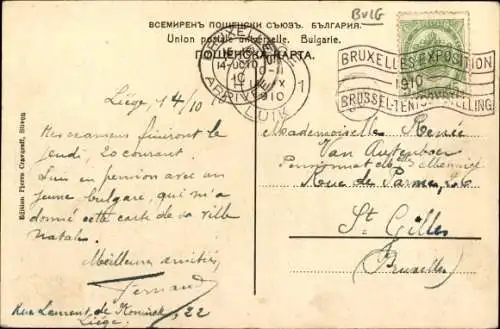 BVLG
ВСЕМИРЕНЪ ПОЩЕНСКИ СЪЮЗЪ. БЪЛГАРИЯ.
Union postale universelle. Bulgarie.
ПОЩЕНСКА КАРТА.
BRUXELLES
14-OCTO
1910
ARRIVÉE
LUIK
1910
1
BRUXELLES-EXPOSITION
1910
BRUSSEL-TENTOONSTELLING
Liége, 14/10
Mes examens finiront le
jeudi, 20 courant.
Suis en pension avec un
jeune bulgare, qui m'a
donné cette carte de sa ville
natale.
Meilleures amitiés,
Fernand
Rue Laurent de Koninck, 22
Liége.
Mademoiselle Renée
Van Autenboer
Pensionnat de Melle
Rue de Parme, 26
St Gilles
(Bruxelles)
Edition Pierre